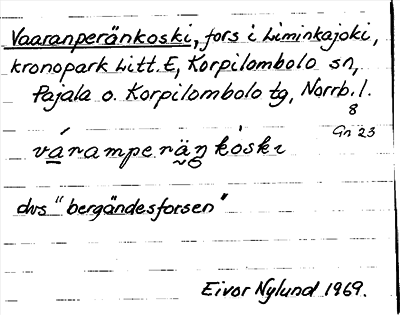 Vaaranperänkoski, fors i Liminkajoki,
kronopark Litt. E, Korpilombolo sn,
Pajala o. Korpilombolo tg, Norrb. l.
8
Gn 23
várampęrä̰ŋkoski
dvs "bergändesforsen"
Eivor Nylund 1969.